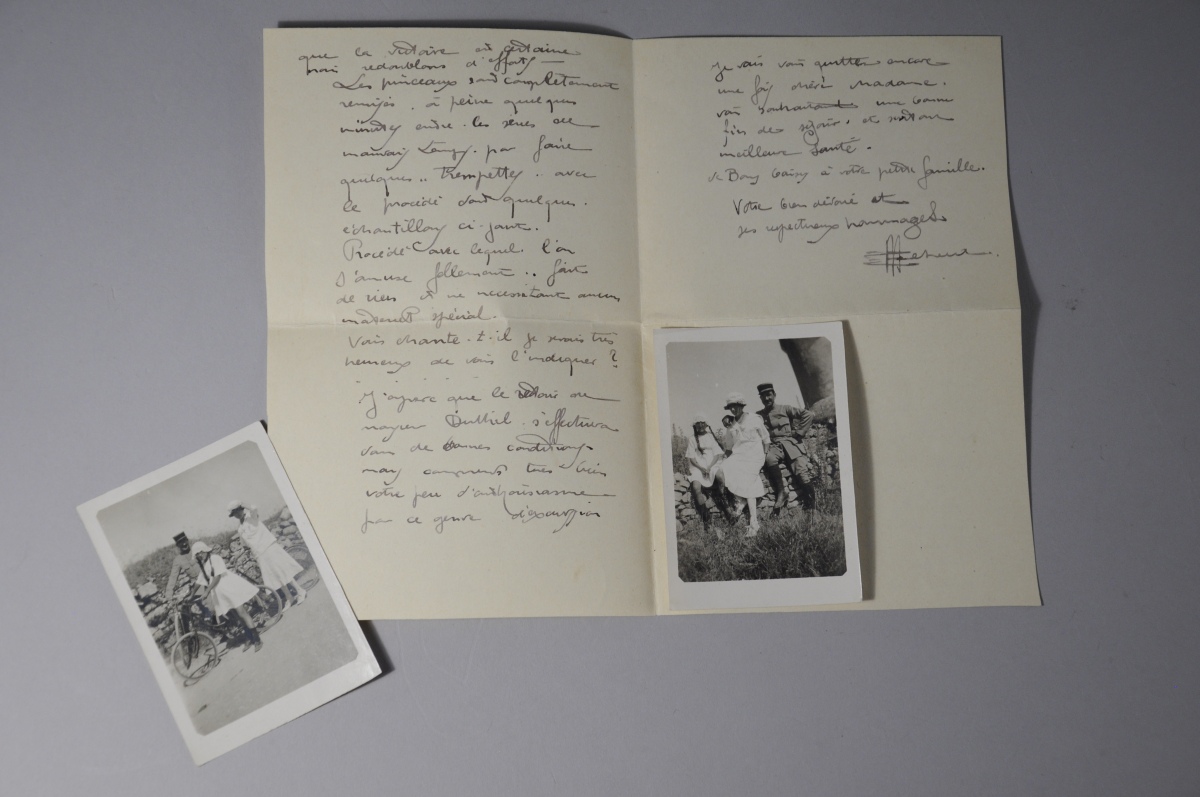 que la victoire est certaine
mais redoublons d'efforts —
Les pinceaux sont complètement
remisés. à peine quelques
minutes entre les séries de
mauvais temps. pour faire
quelques .. Trempettes .. avec
le procédé dont quelques
échantillons ci-joint.
Procédé avec lequel l'on
s'amuse follement .. fait
de riens et ne necessitant aucun
materiel spécial.
Vous chante-t-il je serais très
heureux de vous l'indiquer ?
J'espère que le retour du
s'effectuera
dans de bonnes conditions
mais comprends très bien
votre peu d'enthousiasme
pour ce genre d'excursion
Je vais vous quitter encore
une fois chère Madame.
vous souhaitant une bonne
fin de séjour, et surtout
meilleure santé.
de Bons baisers à votre petite famille.
Votre bien dévoué et
ses respectueux hommages